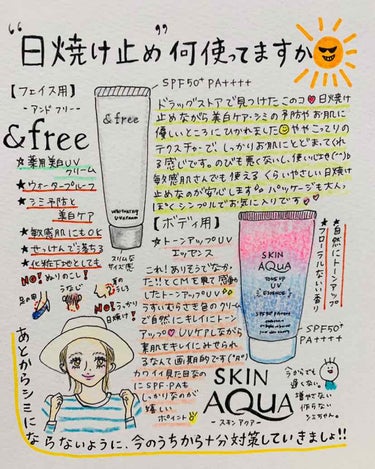 “日焼け止め”何使ってますか
【フェイス用】
-アンドフリー-
&free
★薬用美白UV
クリーム
★ウォータープルーフ
★シミ予防と
美白ケア
★敏感肌にもOK
★せっけんで落ちる
★化粧下地としても
SPF50+ PA++++
& free
whitening
UV cream
スリムな
サイズ感
ドラッグストアで見つけたこのコ♥日焼け
止めながら美白ケア・シミの予防やお肌に
優しいところにひかれました😊ややこってりの
テクスチャーで、しっかりお肌にとどまってくれ
る感じです。のびも悪くないし、使い心地(^^)♭
敏感肌さんでも使えるくらいやさしい日焼け
止めなのが安心します♭パッケージも大人っ
ぽくシンプルでお気に入りです♥♥
NO! ぬりのこし!
うなじ
耳のうしろ
足の甲
NO! うっかり
日焼け!
【ボディ用】
★トーンアップUV
エッセンス
これ!ありそうでなか
った!!とCMを見て感動
したトーンアップUV♭
うすいむらさき色のクリーム
で自然にキレイにトーン
アップ♥UVケアしながら
素肌をキレイにみせられ
るなんて画期的です(°o°)
カワイイ見た目なの
にSPF・PAも
しっかりなのが
嬉しい
ポイント
SKIN
AQUA
TONE UP
UV
ESSENCE
SPF50+ PA++++
★自然にトーンアップ
★フローラルないい香り
SPF50+
PA++++
SKIN
AQUA
-スキンアクア-
今からでも
遅くない。
増やさない
作らない
シミちゃん。
あとからシミにならないように、今のうちから十分対策していきましょ!!